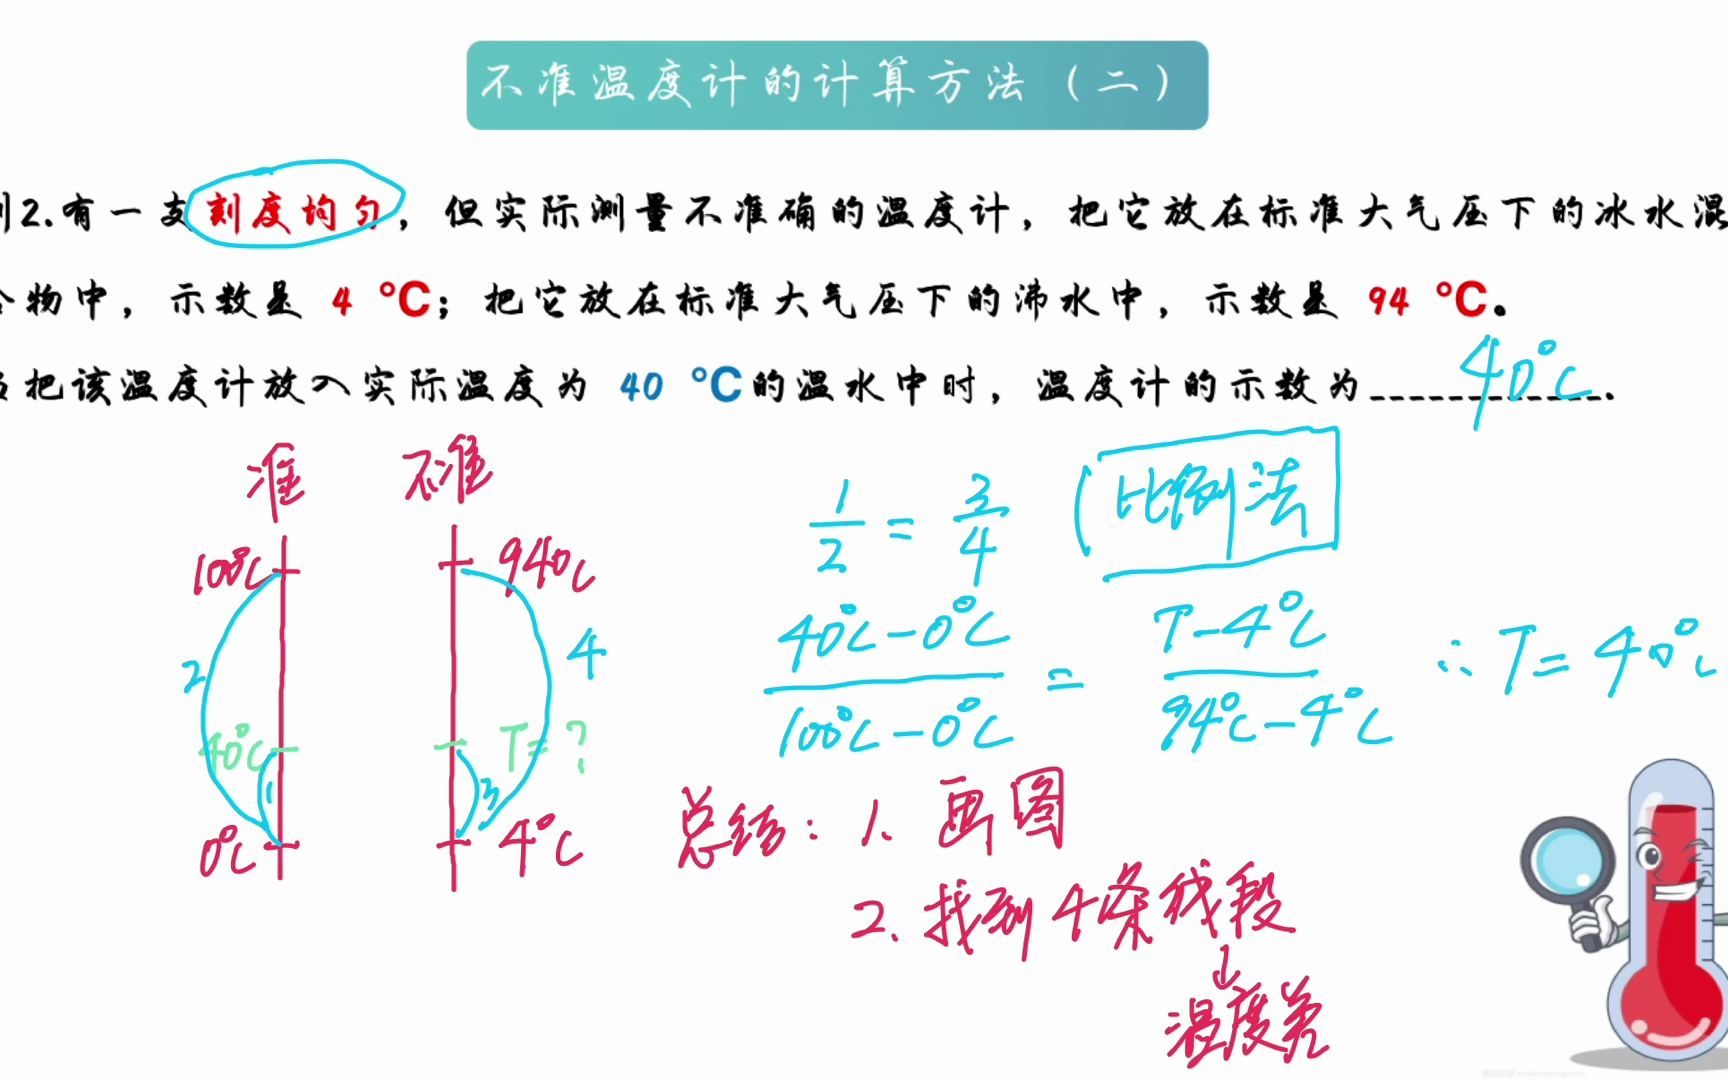 不准温度计的计算方法（二）
例2.有一支刻度均匀，但实际测量不准确的温度计，把它放在标准大气压下的冰水混
合物中，示数是 4 ℃；把它放在标准大气压下的沸水中，示数是 94 ℃。
当把该温度计放入实际温度为 40 ℃的温水中时，温度计的示数为____________.
40℃
准 不准
100℃ 94℃
2 4
40℃ T=?
1 3
0℃ 4℃
1/2 = 3/4 (比例法
(40℃-0℃)/(100℃-0℃) = (T-4℃)/(94℃-4℃) ∴T=40℃
总结：1、画图
2、找到4条线段
↓
温度差